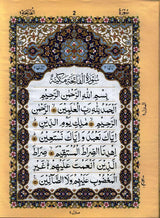 سُورَةُ الْفَاتِحَةِ مَكِّيَّةٌ
بِسْمِ اللَّهِ الرَّحْمَٰنِ الرَّحِيمِ
الْحَمْدُ لِلَّهِ رَبِّ الْعَالَمِينَ الرَّحْمَٰنِ الرَّحِيمِ
مَالِكِ يَوْمِ الدِّينِ
إِيَّاكَ نَعْبُدُ وَإِيَّاكَ نَسْتَعِينُ
اهْدِنَا الصِّرَاطَ الْمُسْتَقِيمَ صِرَاطَ
الَّذِينَ أَنْعَمْتَ عَلَيْهِمْ غَيْرِ
الْمَغْضُوبِ عَلَيْهِمْ وَلَا الضَّالِّينَ